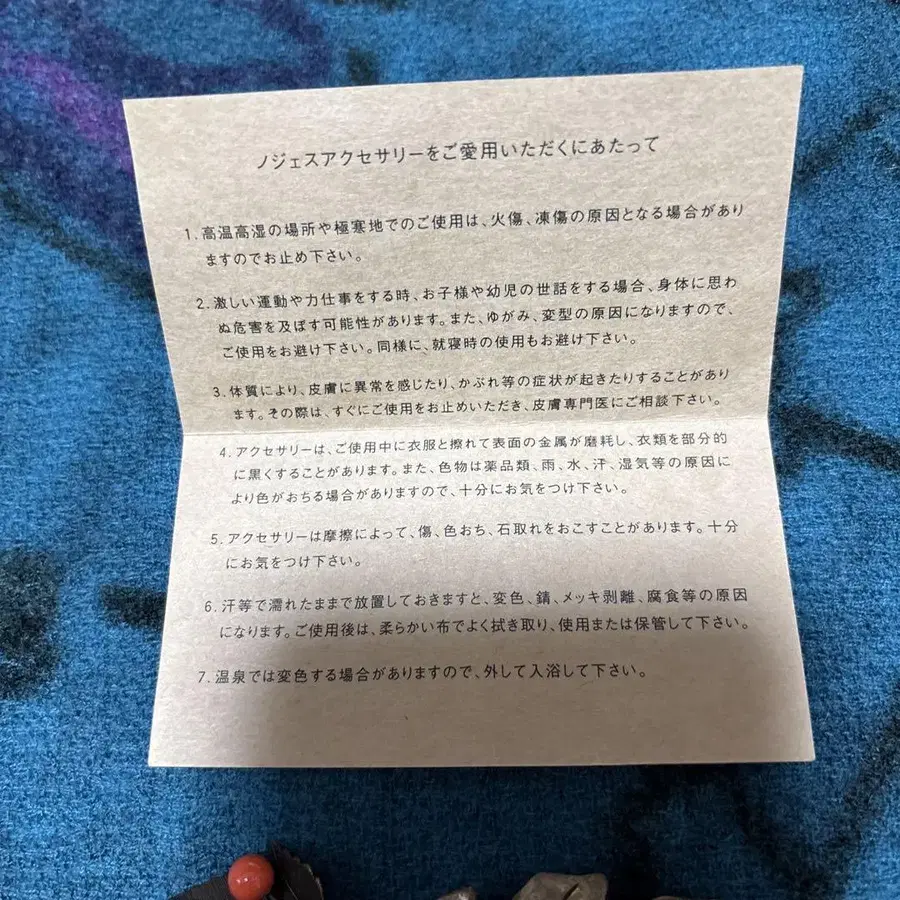 ノジェスアクセサリーをご愛用いただくにあたって
1. 高温高湿の場所や極寒地でのご使用は、火傷、凍傷の原因となる場合があり
ますのでお止め下さい。
2. 激しい運動や力仕事をする時、お子様や幼児の世話をする場合、身体に思わ
ぬ危害を及ぼす可能性があります。また、ゆがみ、変型の原因になりますので、
ご使用をお避け下さい。同様に、就寝時の使用もお避け下さい。
3. 体質により、皮膚に異常を感じたり、かぶれ等の症状が起きたりすることがあり
ます。その際は、すぐにご使用をお止めいただき、皮膚専門医にご相談下さい。
4. アクセサリーは、ご使用中に衣服と擦れて表面の金属が磨耗し、衣類を部分的
に黒くすることがあります。また、色物は薬品類、雨、水、汗、湿気等の原因に
より色がおちる場合がありますので、十分にお気をつけ下さい。
5. アクセサリーは摩擦によって、傷、色おち、石取れをおこすことがあります。十分
にお気をつけ下さい。
6. 汗等で濡れたままで放置しておきますと、変色、錆、メッキ剥離、腐食等の原因
になります。ご使用後は、柔らかい布でよく拭き取り、使用または保管して下さい。
7. 温泉では変色する場合がありますので、外して入浴して下さい。